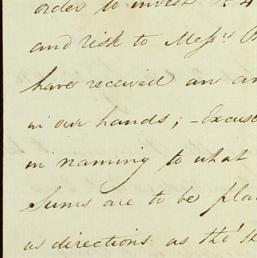 order to invest
and risk to Mess.rs
have received an
in our hands; - Excuse
in naming to what
Sums are to be pla
as directions as tho' se